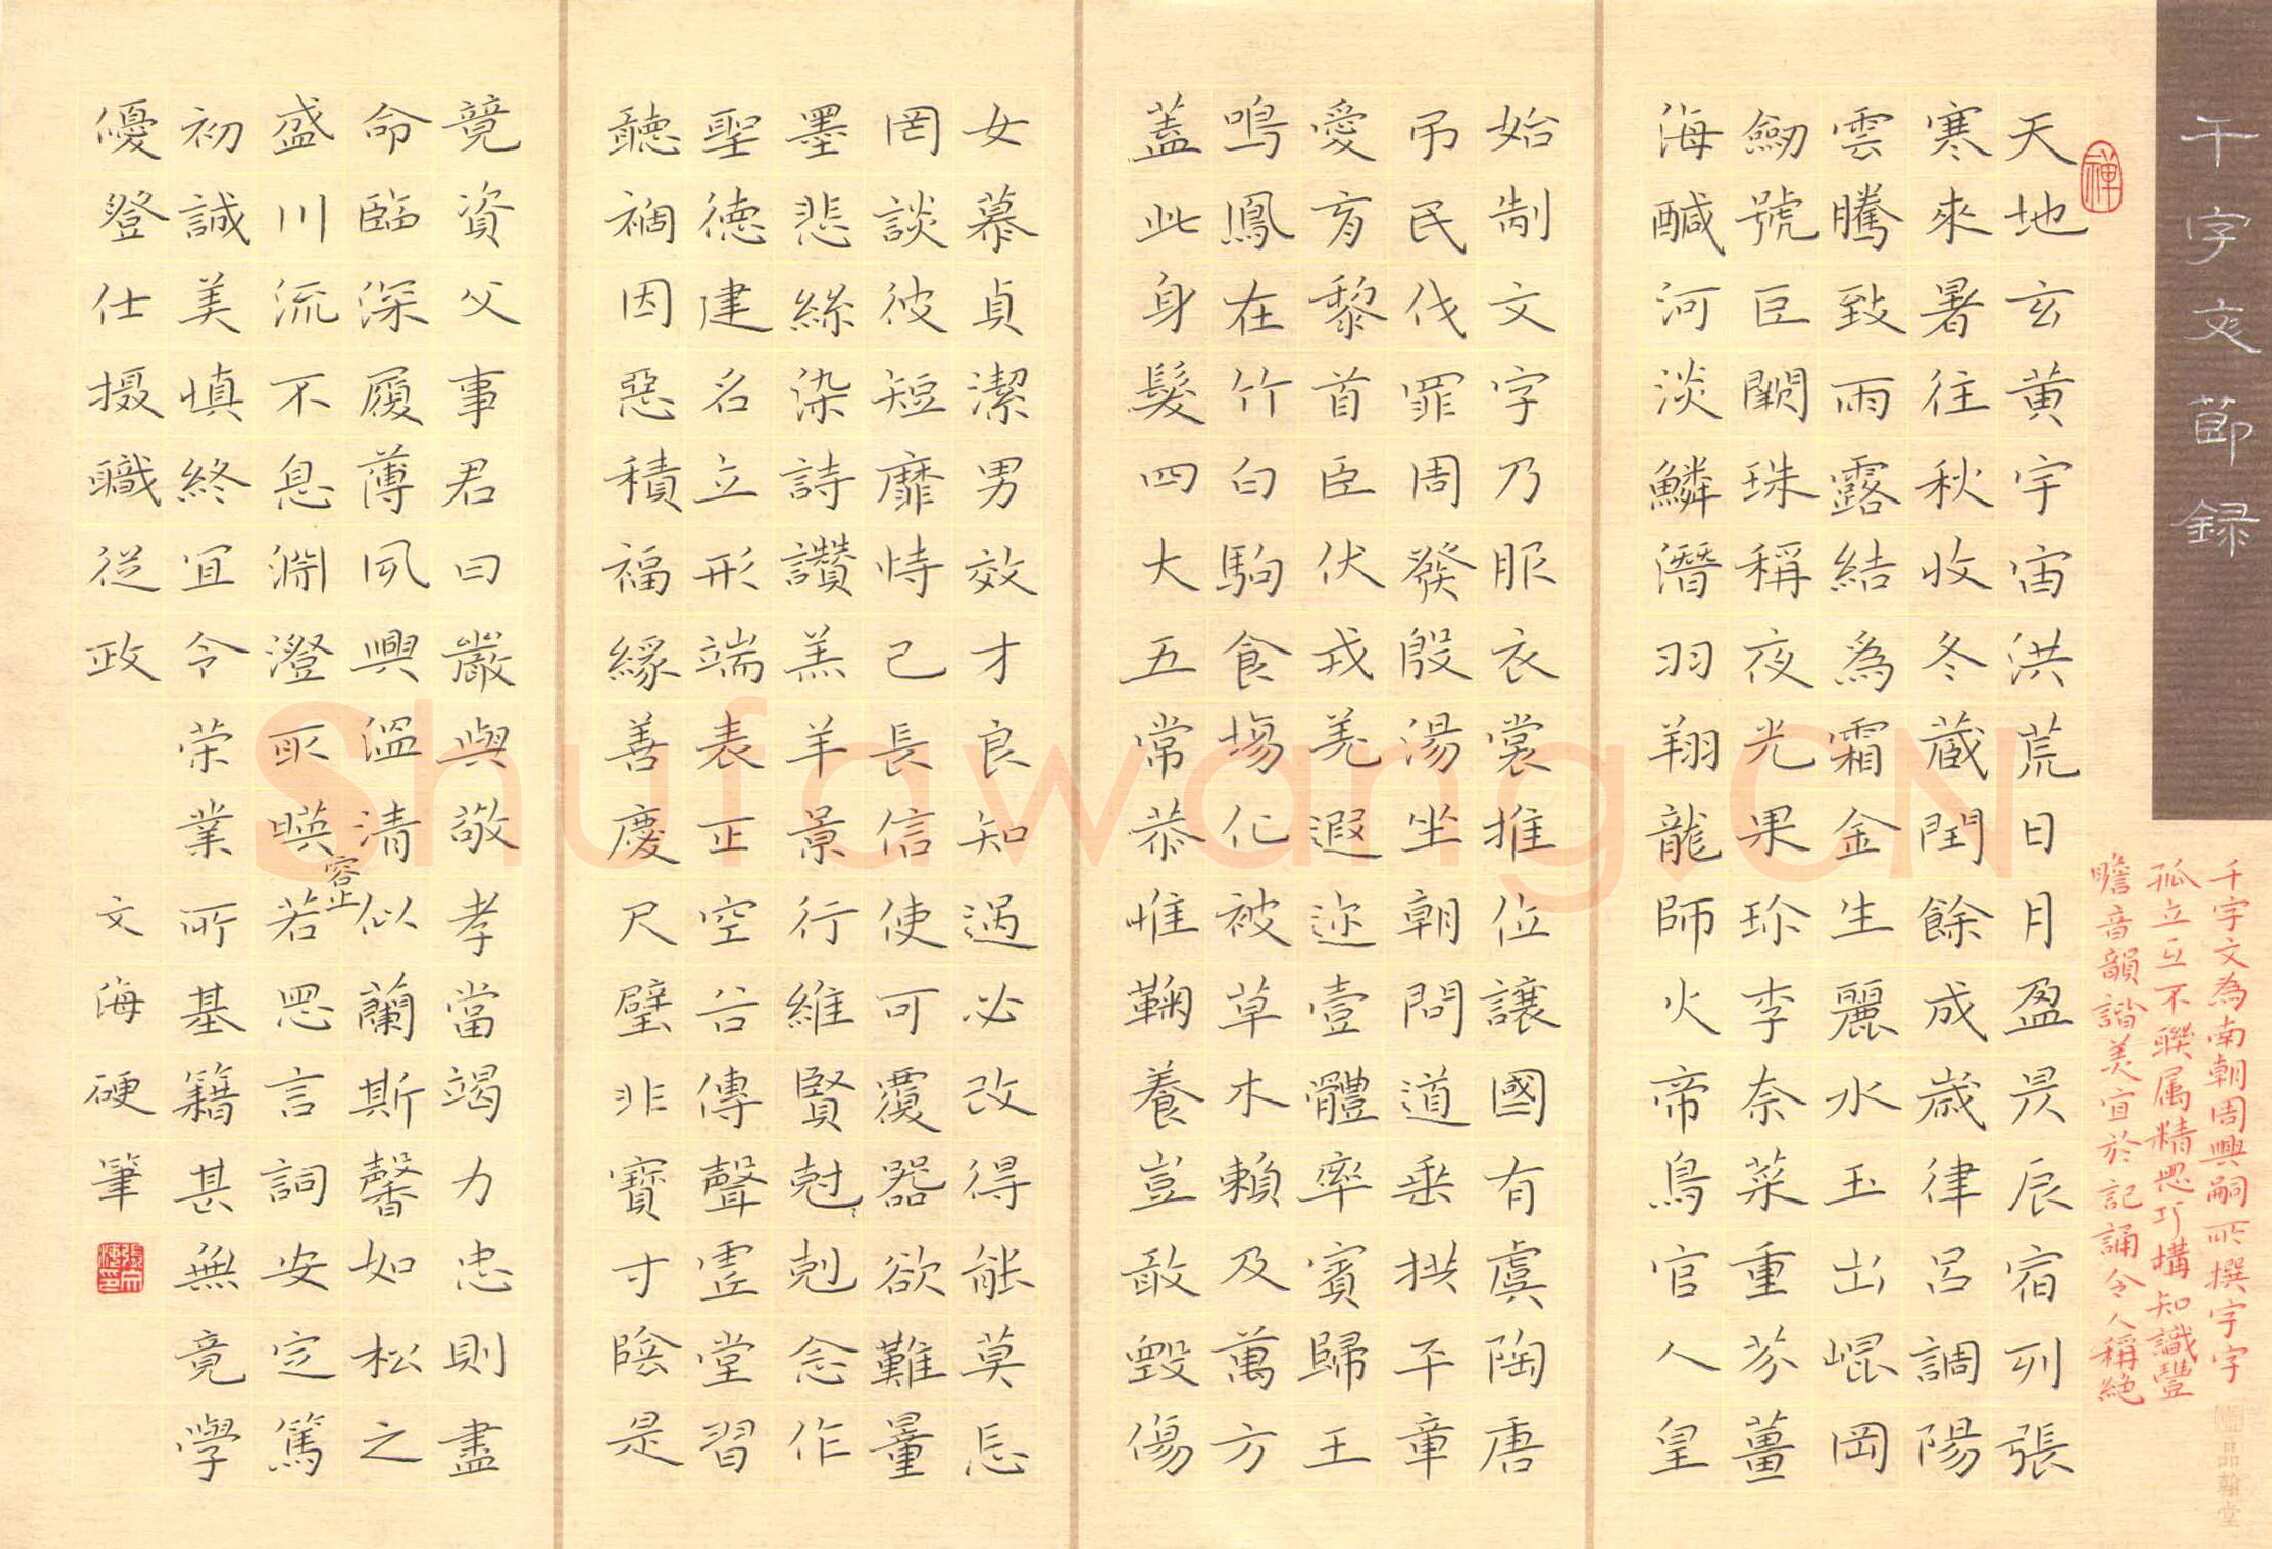 千字文莭録
千字文為南朝周興嗣所撰字字
孤立互不聯属精思巧構知識豐
瞻音韻諧美宜於記誦令人稱絶
禪
天地玄黄宇宙洪荒日月盈昃辰宿列張
寒來暑往秋收冬蔵閏餘成歲律吕調陽
雲騰致雨露結為霜金生麗水玉出崐岡
劒號巨闕珠稱夜光果珍李柰菜重芥薑
海醎河淡鱗潛羽翔龍師火帝鳥官人皇
始制文字乃服衣裳推位讓國有虞陶唐
吊民伐罪周發殷湯坐朝問道垂拱平章
愛育黎首臣伏戎羌遐迩壹體率賓歸王
鳴鳳在竹白駒食場化被草木賴及萬方
蓋此身髮四大五常恭惟鞠養豈敢毀傷
女慕貞潔男效才良知過必改得能莫忘
罔談彼短靡恃己長信使可覆器欲難量
墨悲絲染詩讚羔羊景行維賢尅剋念作
聖德建名立形端表正空谷傳聲虛堂習
聽禍因惡積福緣善慶尺璧非寶寸陰是
競資父事君曰嚴與敬孝當竭力忠則盡
命臨深履薄夙興溫清似蘭斯馨如松之
容止
盛川流不息淵澄取暎若思言詞安定篤
初誠美慎終宜令荣業所基籍甚無竟學
優登仕摄職從政
文海硬筆
品翰堂
Shufawang.CN